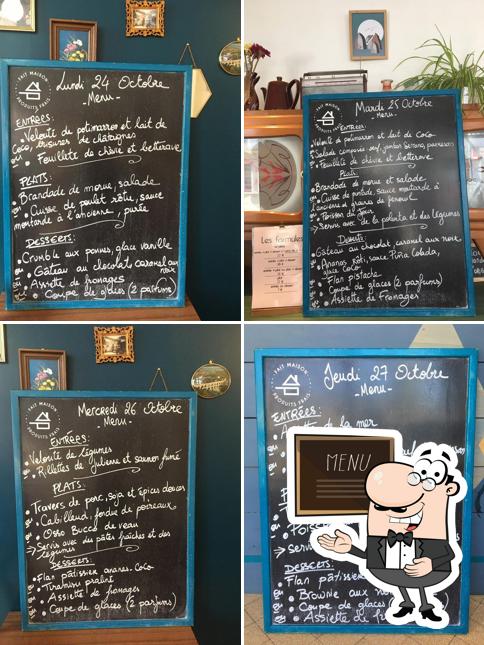 FAIT MAISON
PRODUITS FRAIS
Lundi 24 Octobre
-Menu-
ENTRÉES:
Velouté de potimarron et lait de
Coco, brisures de châtaignes
ou Feuilleté de chèvre et betterave
PLATS:
Brandade de morue, salade
ou Cuisse de poulet rôti, sauce
moutarde à l'ancienne, purée
DESSERTS:
Crumble aux pommes, glace vanille
ou Gâteau au chocolat caramel aux
noix
ou Assiette de fromages
ou Coupe de glaces (2 parfums)
FAIT MAISON
PRODUITS FRAIS
Mardi 25 Octobre
-Menu-
ENTRÉES
Velouté de potimarron et lait de Coco
Salade composée
ou Feuilleté de chèvre et betterave
Plats:
Brandade de morue et salade
ou Cuisse de pintade, sauce moutarde à
l'ancienne et graines de fenouil
ou Poisson du jour
→ Servis avec de la polenta et des légumes
Desserts:
Gâteau au chocolat, caramel aux noix
ou Ananas rôti, sauce Piña Colada,
glace Coco
ou Flan pistache
ou Coupe de glaces (2 parfums)
ou Assiette de Fromages
Les formules
FAIT MAISON
PRODUITS FRAIS
Mercredi 26 Octobre
-Menu-
ENTRÉES:
Velouté de légumes
ou Rillettes de
et saumon fumé
PLATS:
Travers de porc, soja et épices douces
ou Cabillaud, fondue de poireaux
ou Osso Bucco de veau
→ Servis avec des pâtes fraîches et des
légumes
DESSERTS:
Flan pâtissier ananas-coco
ou Tiramisu praliné
ou Assiette de fromages
ou Coupe de glaces (2 parfums)
FAIT MAISON
PRODUITS FRAIS
Jeudi 27 Octobre
-Menu-
ENTRÉES:
de la mer
MENU
Servi
DESSERTS:
Flan pâtissier
ou Brownie aux no
ou Coupe de glaces
ou Assiette de f